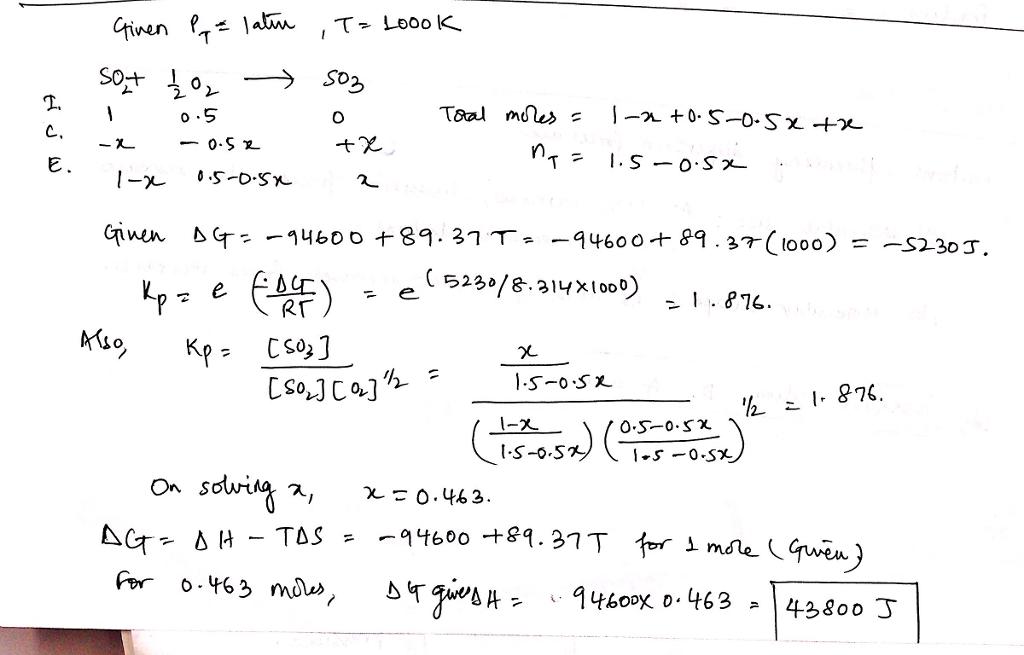 Given P_T = 1atm , T = 1000K
SO2+ 1/2 O2 → SO3
I. 1 0.5 0 Total moles = 1-x +0.5-0.5x +x
C. -x -0.5x +x n_T = 1.5-0.5x
E. 1-x 0.5-0.5x x
Given ΔG = -94600 +89.37T = -94600+ 89.37(1000) = -5230J.
Kp = e (-ΔG/RT) = e (5230/8.314×1000) = 1.876.
Also, Kp = [SO3]/[SO2][O2]^1/2 = (x/1.5-0.5x)/(1-x/1.5-0.5x)(0.5-0.5x/1.5-0.5x)^1/2 = 1.876.
On solving x, x = 0.463.
ΔG = ΔH - TΔS = -94600 +89.37T for 1 mole (Given)
For 0.463 moles, ΔG gives ΔH = 94600x 0.463 = 43800 J